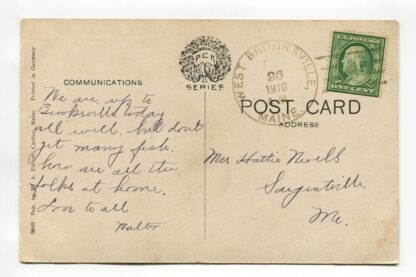 COMMUNICATIONS
THE
PCK
SERIES
WEST BROOKSVILLE,
26
1910
MAINE
U.S. POSTAGE
ONE CENT
POST CARD
ADDRESS
We are up to
Brooksville today
all well. but don't
get many fish.
how are all the
folks at home.
Love to all
Walter
Mrs Hattie Nevells
Sargentville
Me.
Castine, Maine Printed in Germany